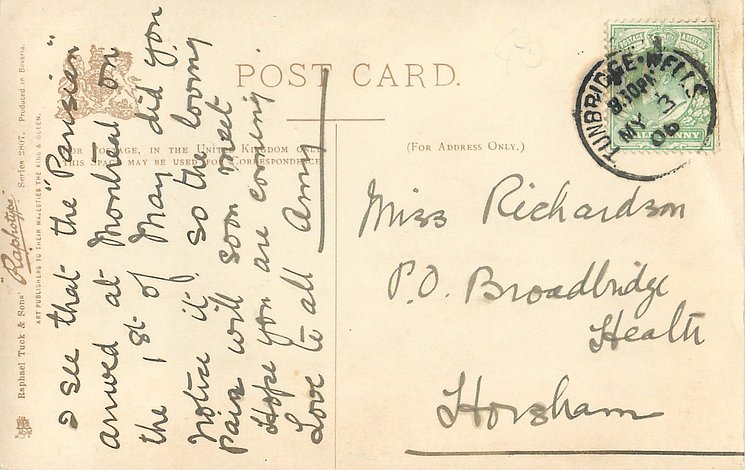 POST CARD.
FOR POSTAGE, IN THE UNITED KINGDOM ONLY,
THIS SPACE MAY BE USED FOR CORRESPONDENCE
(FOR ADDRESS ONLY.)
TUNBRIDGE-WELLS
8.30PM
MY 3
06
HALFPENNY
I see that the "Parisian"
arrived at Montreal on
the 1st of May did you
notice it, so the loving
pair will soon meet
Hope you are coming
Love to all Amy
Miss Richardson
P.O. Broadbridge
Heath
Horsham
Raphael Tuck & Sons' "Raphotype" Series 2807. Produced in Bavaria.
ART PUBLISHERS TO THEIR MAJESTIES THE KING & QUEEN.